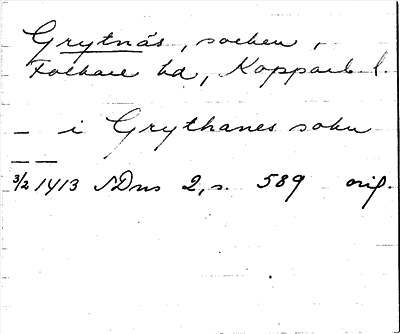 Grytnäs, socken,
Folkare hd, Kopparb. l.
— i Grythanes sokn
— —
3/2 1413 SDns 2, s. 589 orig.